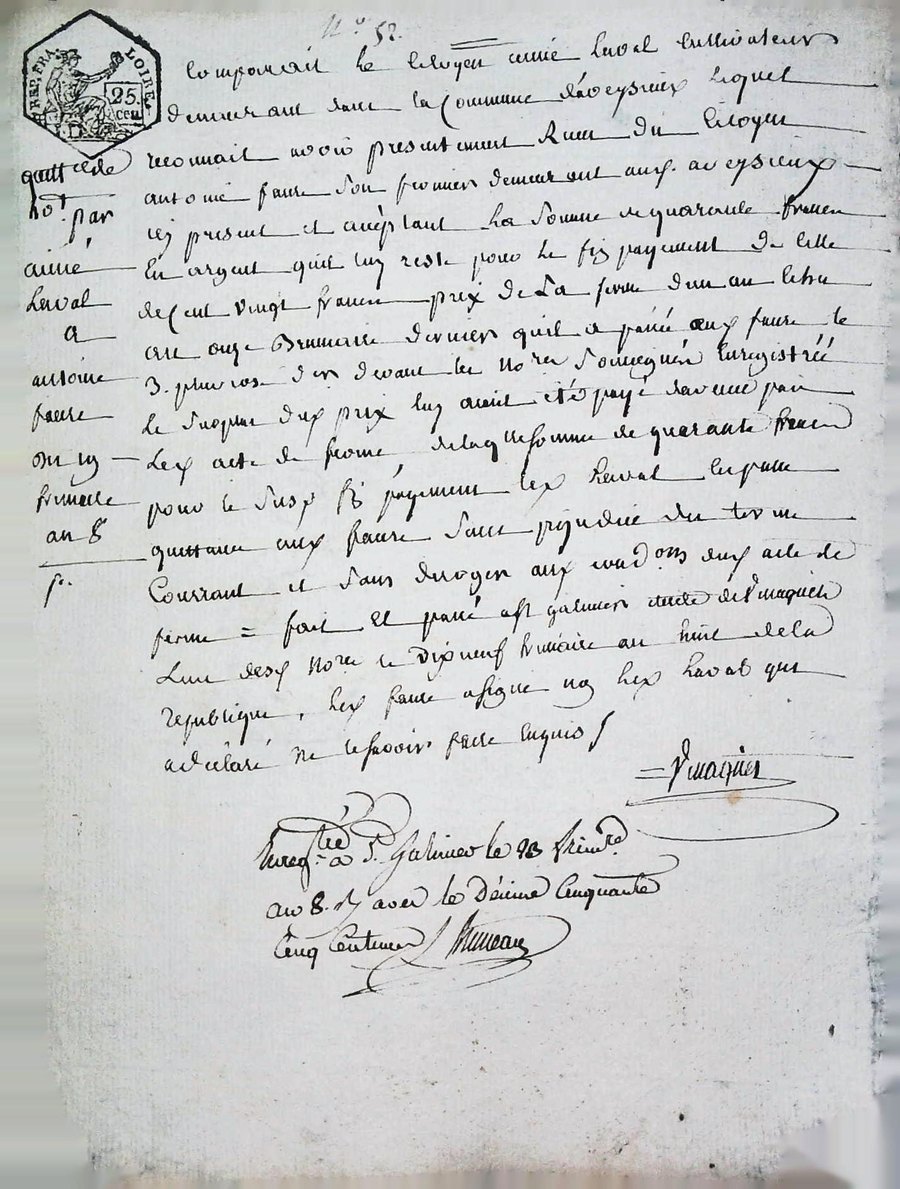 N.º 52.
REP. FRA.
LOIRE.
25.
cen
Comparait le Citoyen aimé Laval Cultivateur
demeurant dans la Commune daveysieux Lequel
reconnait avoir presentement Recu du Citoyen
antoine faure son fermier demeurant aux. aveysieux
icy present et acceptant La somme de quarante francs
En argent quil luy reste pour le fix payement de celle
de Cent vingt francs prix de La ferme dun an Echu
au onze Brumaire dernier quil a passé aux faure le
3. pluviose der devant le Nore soussigné Enregistrée
Le surplus dux prix luy ayant été payé davance par
Lex acte de ferme delaq.le somme de quarante francs
pour le susx fix payement lex Laval En passe
quittance aux faure sans préjudice du terme
Courrant et sans deroger aux cond.ons dux acte de
ferme = fait Et passé a St galmier etude de Vmagnier
Lun des Nore le dix neuf frimaire an huit de la
republique, Lex faure a signé non Lex Laval qui
a déclaré ne le savoir faire Enquis
Vmagnier
quittce de
par
aimé
Laval
a
antoine
faure
du 19
frimaire
an 8
Enreg.tré a St. Galmier le 23 frim.re
an 8. avec le Décime Cinquante
Cinq Centimes